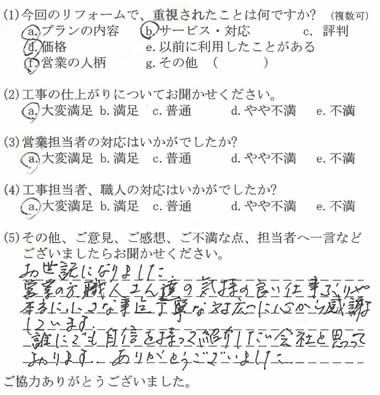 (1)今回のリフォームで、重視されたことは何ですか? (複数可)
a.プランの内容 b.サービス・対応 c. 評判
d.価格 e.以前に利用したことがある
f.営業の人柄 g.その他 ( )
(2)工事の仕上がりについてお聞かせください。
a.大変満足 b.満足 c.普通 d.やや不満 e.不満
(3)営業担当者の対応はいかがでしたか?
a.大変満足 b.満足 c.普通 d.やや不満 e.不満
(4)工事担当者、職人の対応はいかがでしたか?
a.大変満足 b.満足 c.普通 d.やや不満 e.不満
(5)その他、ご意見、ご感想、ご不満な点、担当者へ一言など
ございましたらお聞かせください。
お世話になりました
営業の方職人さん達の気持の良い仕事ぶりや
本当に小さな事に丁寧な対応に心から感謝
しています。
誰にでも自信を持って紹介したい会社と思って
おります。ありがとうございました
ご協力ありがとうございました。